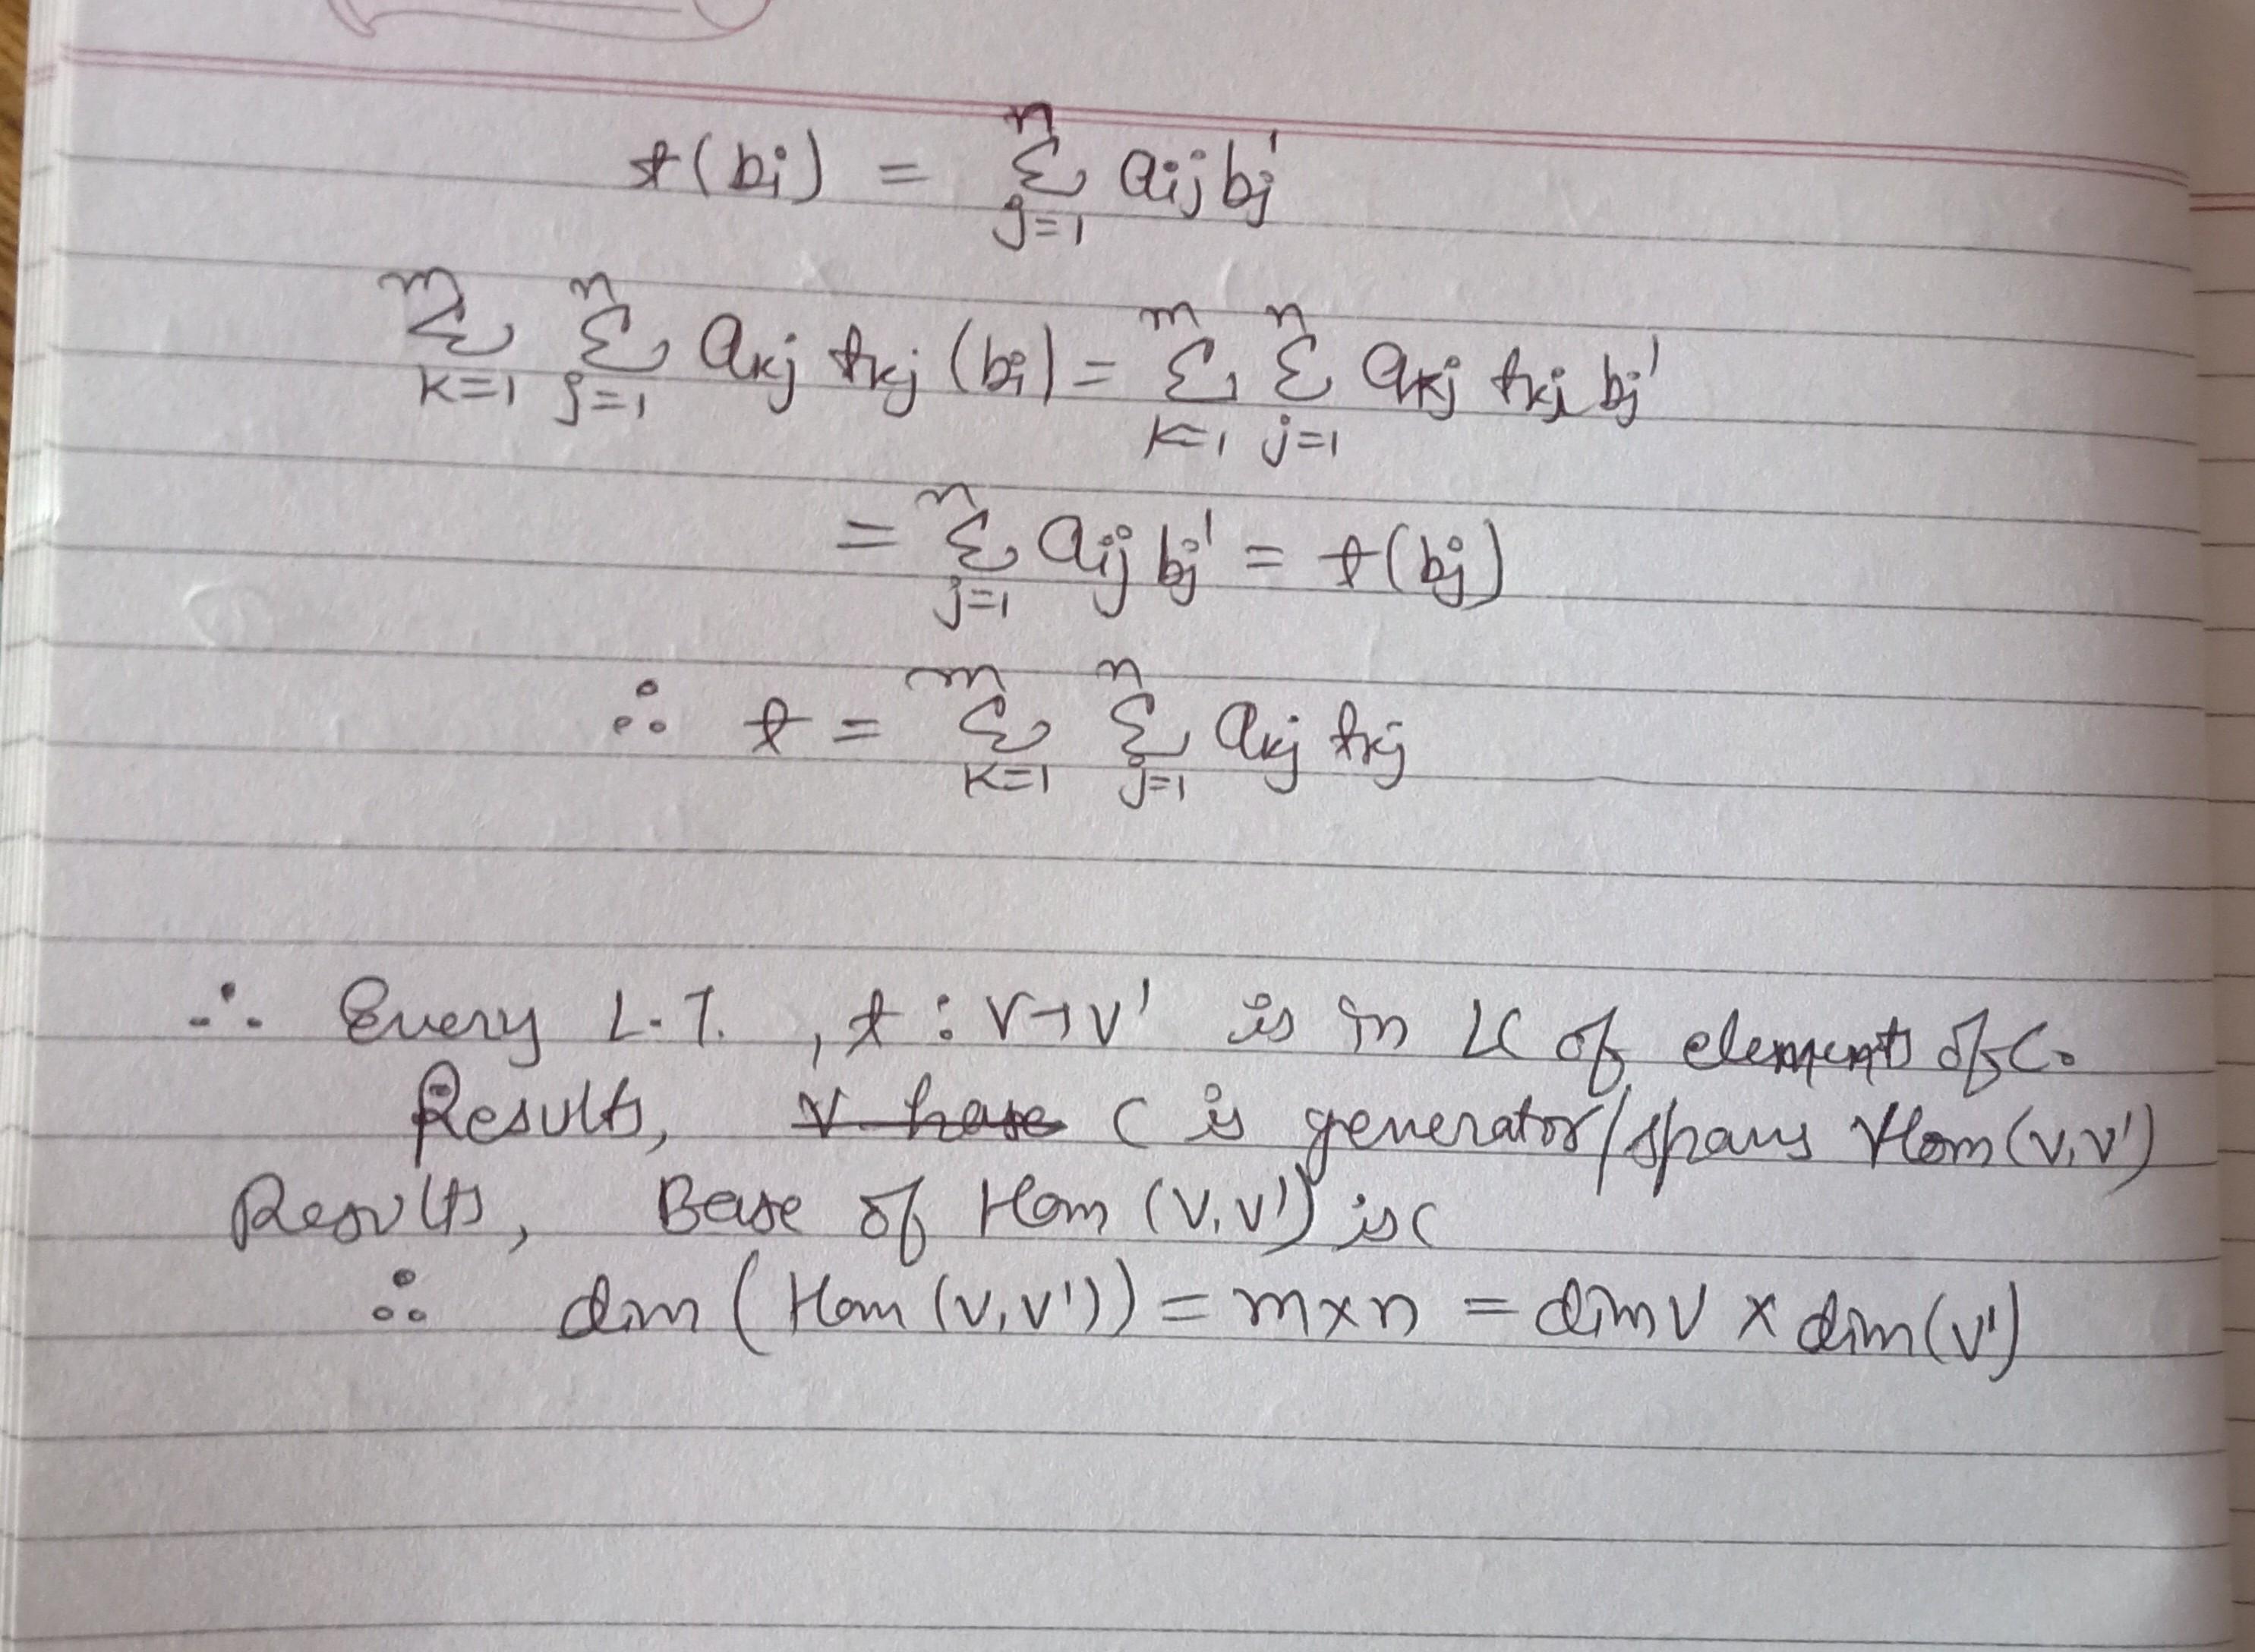 t(bi) = n Σ j=1 aij bj'
m Σ k=1 n Σ j=1 akj tkj (bi) = m Σ k=1 n Σ j=1 akj tkj bj'
= n Σ j=1 aij bj' = t(bj)
∴ t = m Σ k=1 n Σ j=1 akj tkj
∴ Every L.T. , t : V→V' is in LC of elements of C.
Results, V have C is generator/spans Hom(V,V')
Results, Base of Hom (V,V') is C
∴ dim (Hom (V,V')) = m×n = dim V × dim(V')